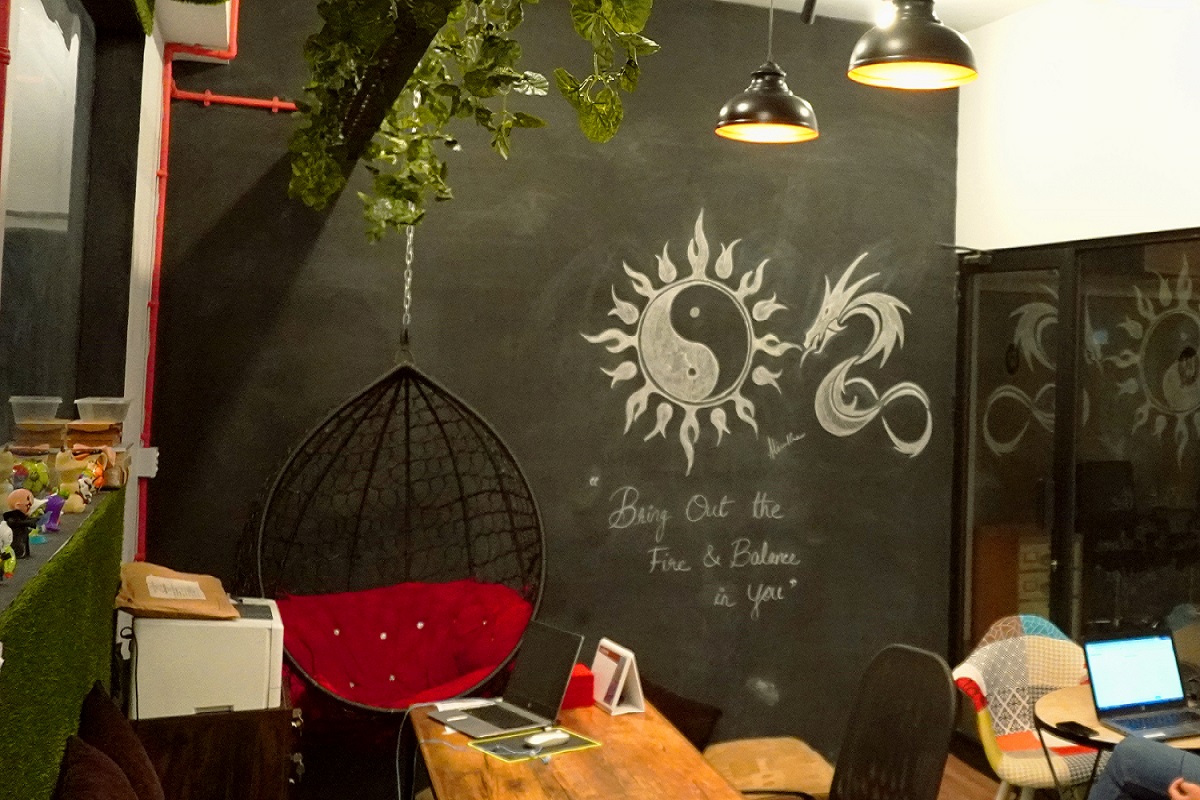 “ Bring Out the
Fire & Balance
in You”